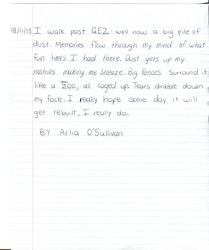 18/11/13 I walk past QEZ well now a big pile of
dust. Memories flow through my mind of what
fun times I had there. Dust gets up my
nostrils making me sneeze. Big fences surround it
like a Zoo, all caged up. Tears dribble down
my face. I really hope some day it will
get rebuilt, I really do.
BY Arlia O'Sullivan